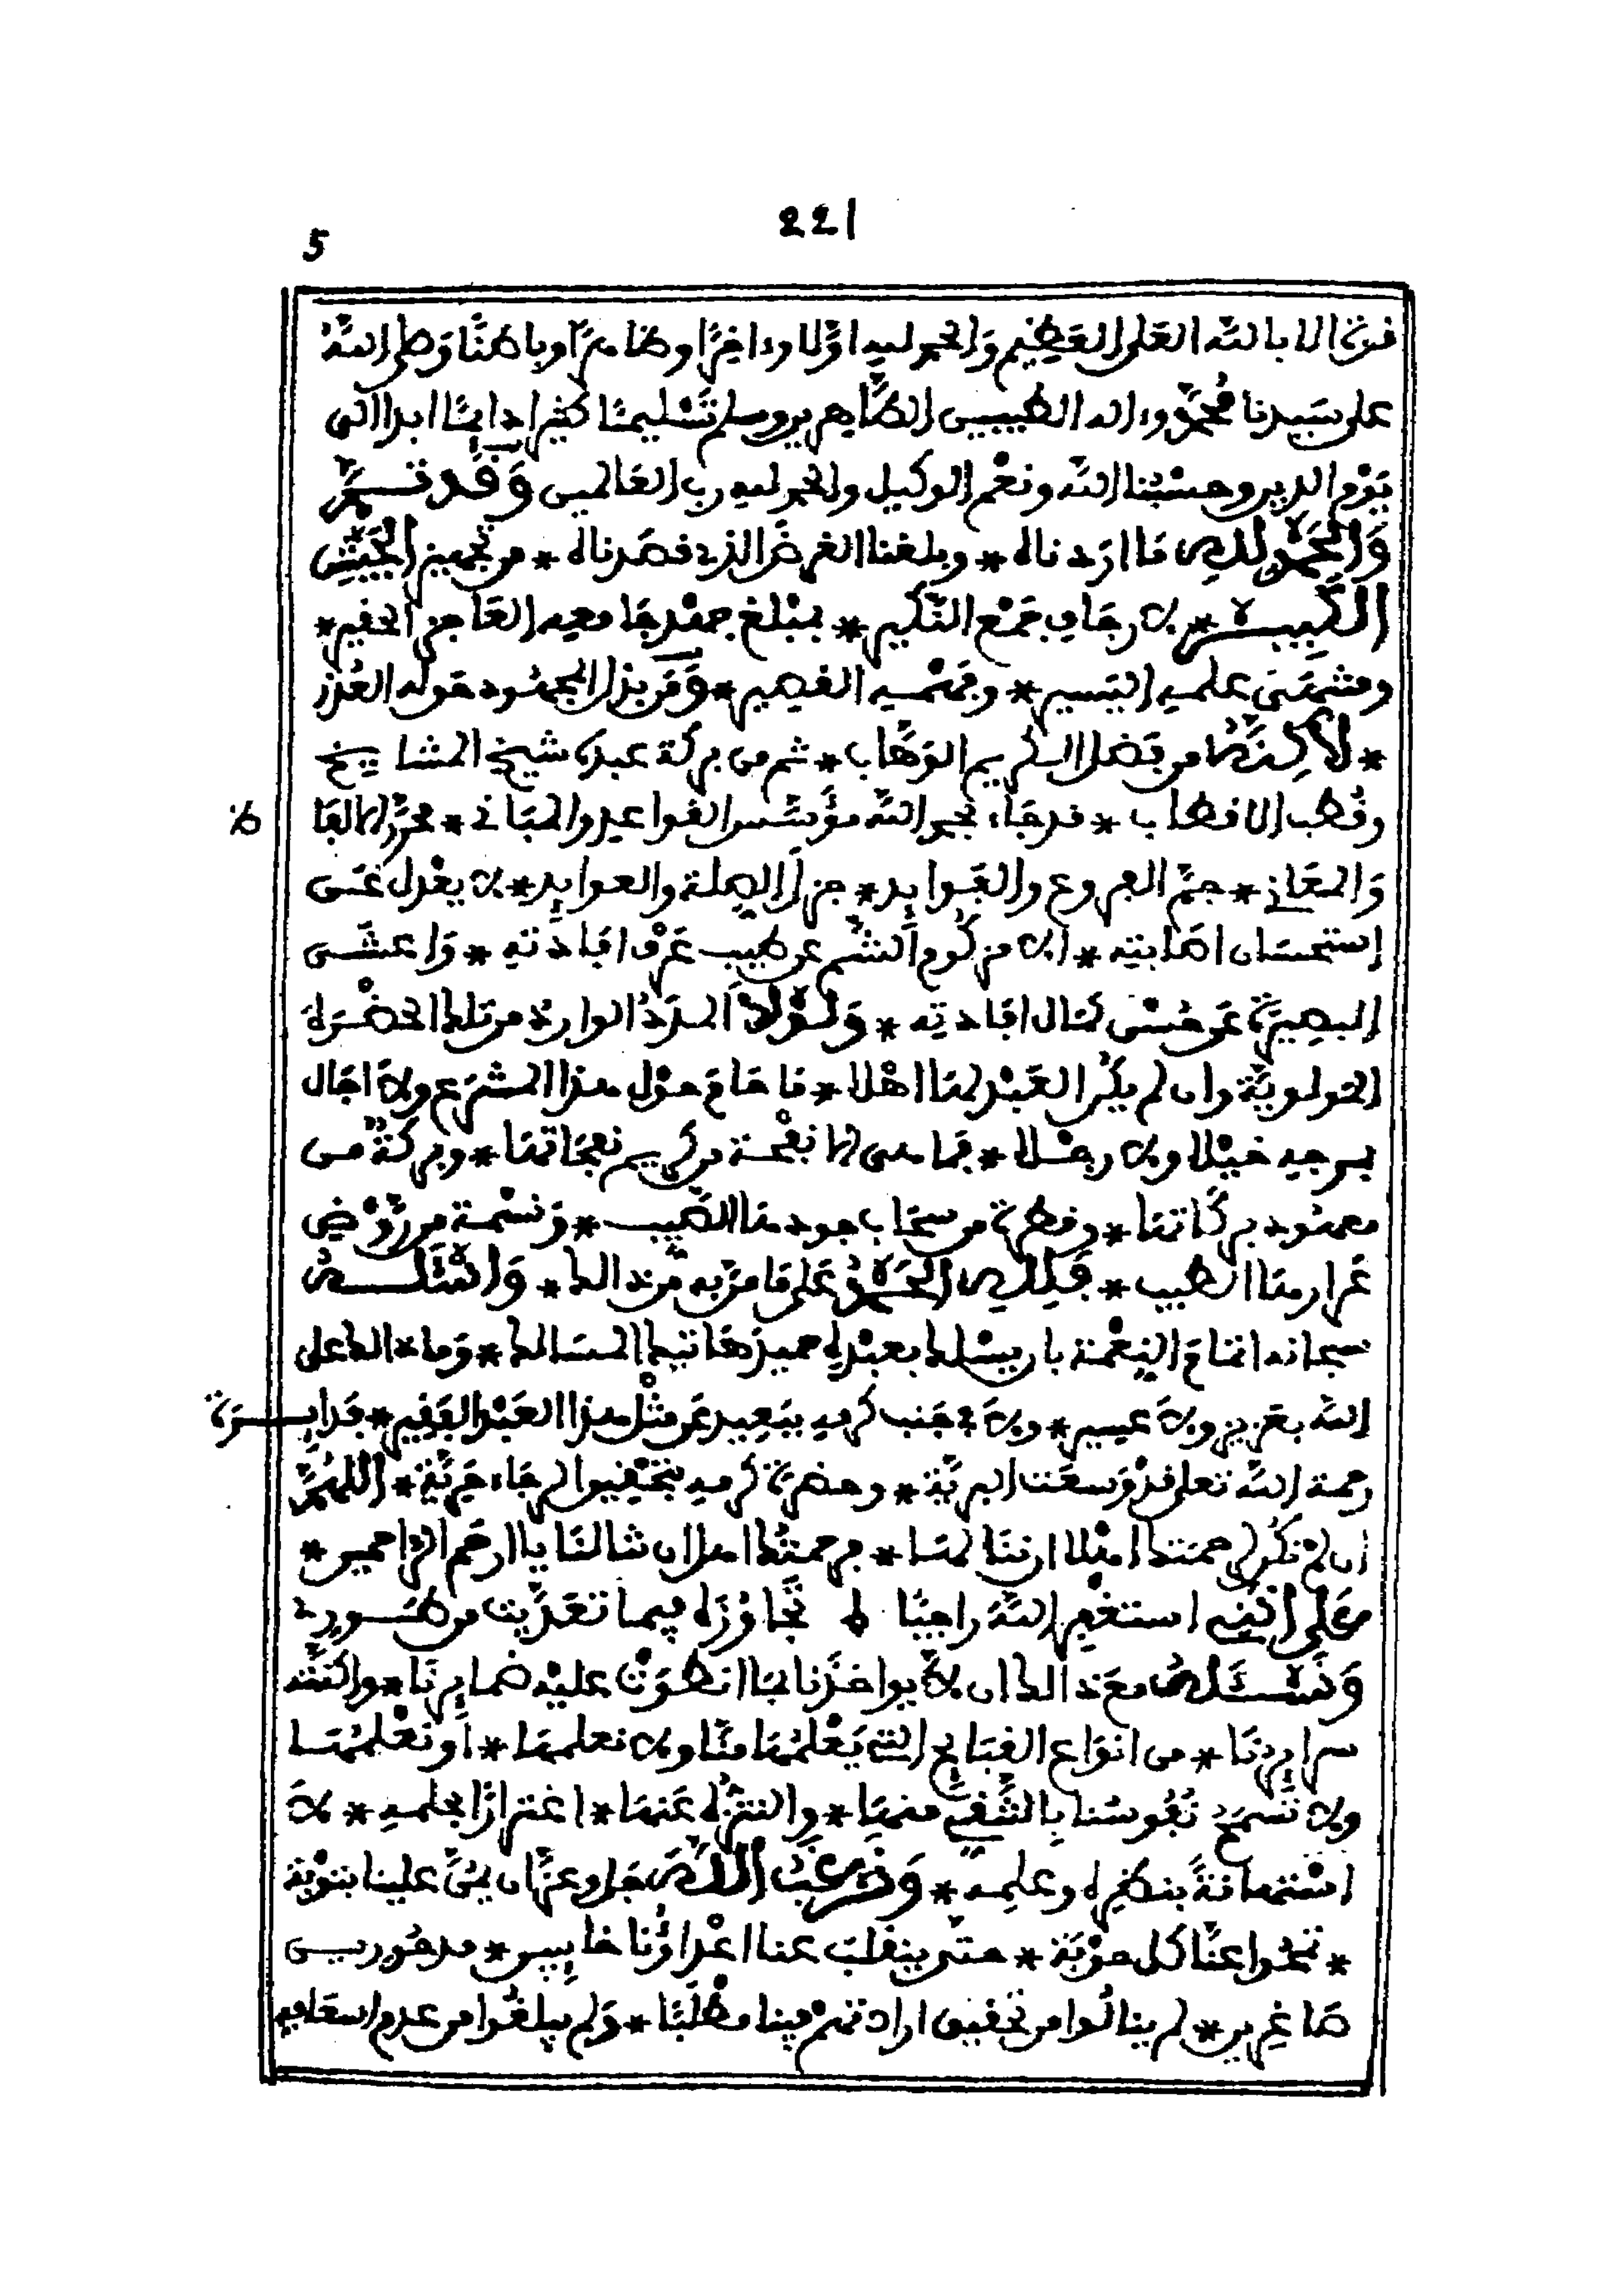 221
5
قوة الا بالله العلي العظيم والحمد لله اولا وءاخرا وظاهرا وباطنا وصلى الله
على سيدنا محمد وءاله الطيبين الطاهرين وسلم تسليما كثيرا دايما ابدا الى
يوم الدين وحسبنا الله ونعم الوكيل والحمد لله رب العالمين وقد تم
والحمد لله ما اردناه * وبلغنا الغرض الذي قصدناه * من تجهيز الجيش
الكبير * لا رجاف جمع النكير * بمبلغ جهد جامعه العاجز الحقير *
ومنتهى علمه اليسير * وفهمه القصير * ومن بذل المجهود حق له العذر
* لاكنه من فضل الكريم الوهاب * ثم من بركة عبده شيخ المشايخ
وقطب الاقطاب * قد جاء بحمد الله مؤسس القواعد والمباني * محرر الالفا ظ
والمعاني * جم الفروع والفوايد * جزل الصلة والعوايد * لا يعدل عن
استحسان اصابته * الا مزكوم الشم عن طيب عرف افادته * واعشى
البصيرة عن حسن كمال افادته * ولولا المدد الوارد من تلك الحضرة
المولوية وان لم يكن العبد لها اهلا * ما حام حول هذا المشرع ولا اجال
برحبه خيلا ولا رجلا * فما هى الا نفحة من كريم نفحاتها * وبركة من
معهود بركاتها * وقطرة من سحاب جودها الصيب * ونسمة من روض
عرارها الطيب * فلله الحمد على ما من به من ذالك * واسئله
سبحانه اتمام النعمة بان يسلك بعبده حميد هاتيك المسالك * وما ذالك على
الله بعزيز ولا عسير * ولا في جنب كرمه ببعيد عن مثل هذا العبد الفقير * فدايرة
رحمة الله تعلى قد وسعت البرية * وحضرة كرمه بتحقيق الرجاء حرية * اللهم
ان لم نكن لرحمتك اهلا ان ننالها * فرحمتك اهل ان تنالنا يا ارحم الراحمين *
على انني استغفر الله راجيا ه تجاوزه فيما تعديت من طوري
ونسئله مع ذالك ان لا يواخذنا بما انطوت عليه ضمايرنا * واكنته
سرايرنا * من انواع القبايح التي يعلمها منا ولا نعلمها * او نعلمها
ولا تسمح نفوسنا بالتنقي منها * والتنزه عنها * اغترارا بحلمه * لا
استهانة بنظره وعلمه * ونرغب الله جل وعز ان يمن علينا بتوبة
* تمحوا عنا كل حوبة * حتى ينقلب عنا اعداؤنا خايبين * مدحورين
صاغرين * لم ينالوا من تحقيق ارادتهم فينا مطلبا * ولم يبلغوا من عدم اسعافه